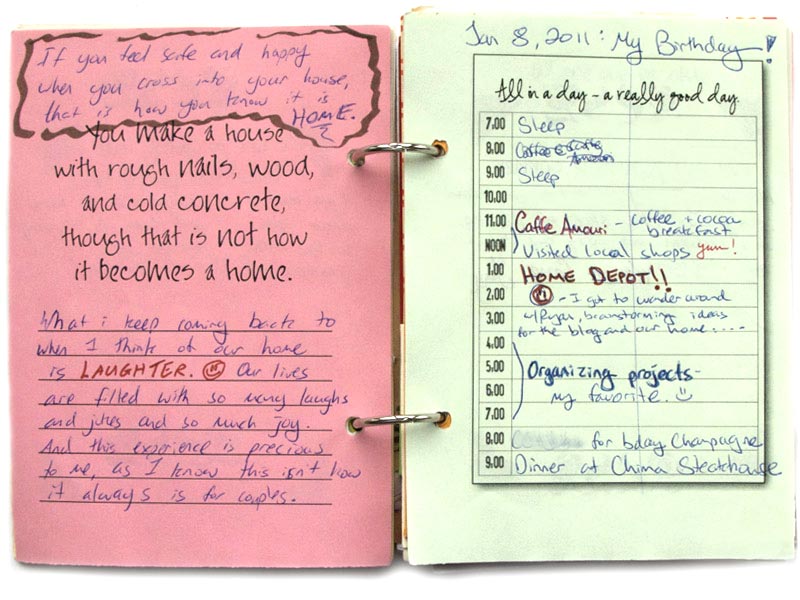 If you feel safe and happy
when you cross into your house,
that is how you know it is
HOME.
You make a house
with rough nails, wood,
and cold concrete,
though that is not how
it becomes a home.
What i keep coming back to
when I think of our home
is LAUGHTER. Our lives
are filled with so many laughs
and jokes and so much joy.
And this experience is precious
to me, as I know this isn't how
it always is for couples.
Jan 8, 2011: My Birthday!
All in a day - a really good day.
7.00 Sleep
8.00
9.00 Sleep
10.00
11.00 Caffe Amouri - coffee + cocoa
breakfast
NOON Visited local shops yum!
1.00 HOME DEPOT!!
2.00 - I got to wander around
3.00 w/Ryan, brainstorming ideas
for the blog and our home....
4.00
5.00 Organizing projects-
6.00 my favorite.
7.00
8.00 for bday Champagne
9.00 Dinner at Chima Steakhouse